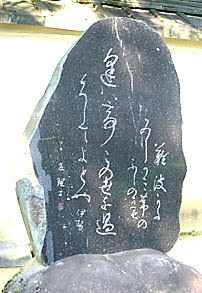 難波かた
みしかき葦の
ふしの
逢はてこの世を過
くしてよとや 伊勢